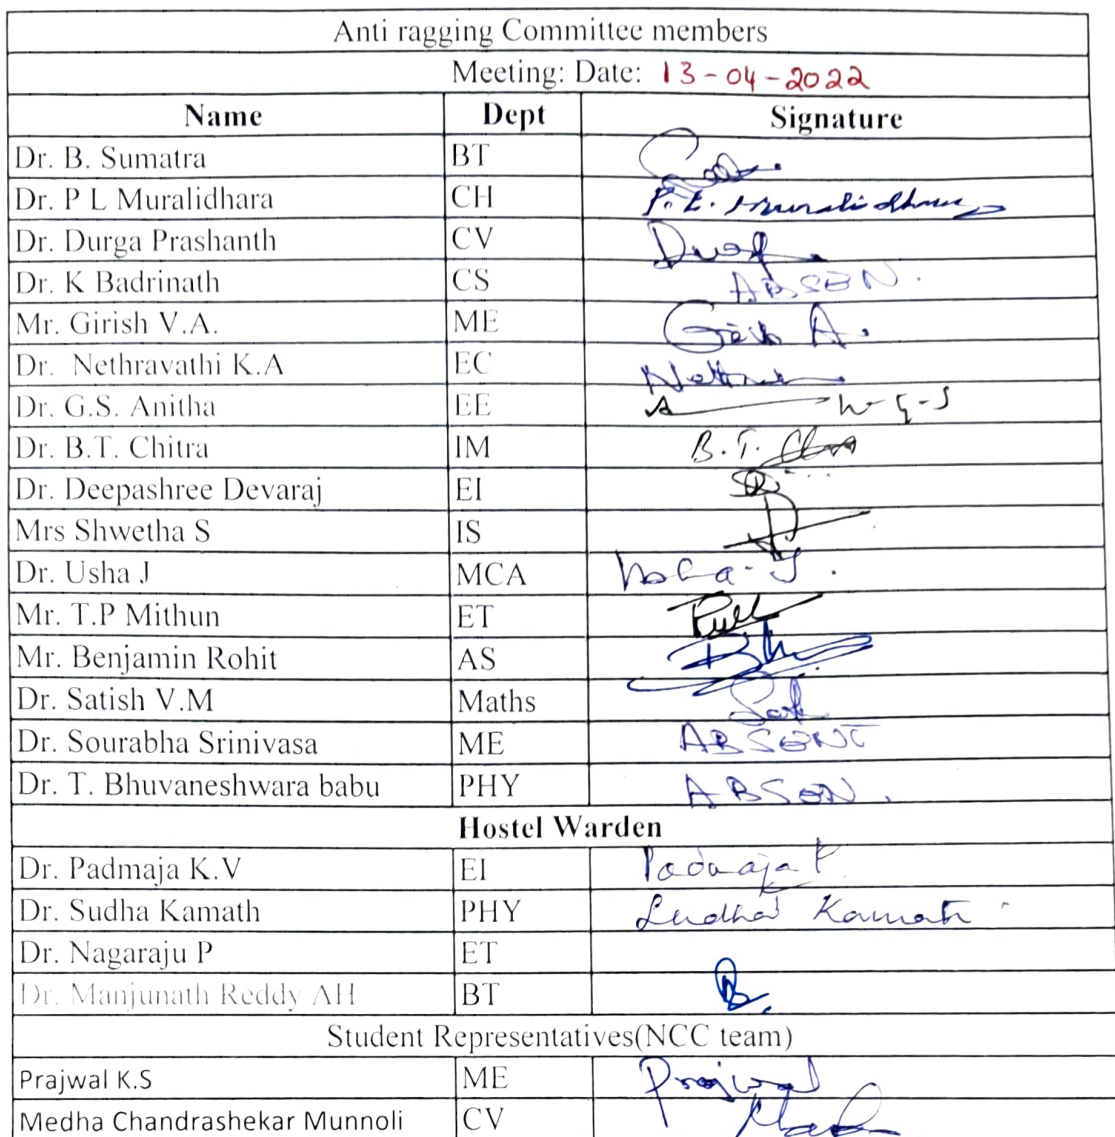 Anti ragging Committee members
Meeting: Date: 13-04-2022
Name Dept Signature
Dr. B. Sumatra BT
Dr. P L Muralidhara CH P. L. Muralidhara
Dr. Durga Prashanth CV Durga
Dr. K Badrinath CS ABSEN.
Mr. Girish V.A. ME Girish A.
Dr. Nethravathi K.A EC
Dr. G.S. Anitha EE
Dr. B.T. Chitra IM B.T.
Dr. Deepashree Devaraj EI
Mrs Shwetha S IS
Dr. Usha J MCA Usha. J.
Mr. T.P Mithun ET
Mr. Benjamin Rohit AS
Dr. Satish V.M Maths
Dr. Sourabha Srinivasa ME ABSENT
Dr. T. Bhuvaneshwara babu PHY ABSEN.
Hostel Warden
Dr. Padmaja K.V EI Padmaja K
Dr. Sudha Kamath PHY Sudha Kamath
Dr. Nagaraju P ET
Dr. Manjunath Reddy AH BT
Student Representatives(NCC team)
Prajwal K.S ME Prajwal
Medha Chandrashekar Munnoli CV